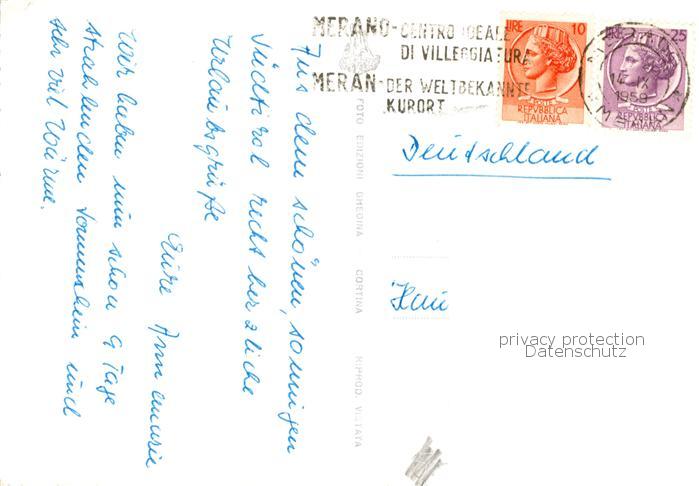 MERANO-CENTRO IDEALE
DI VILLEGGIATURA
MERAN-DER WELTBEKANNTE
KURORT
LIRE 10
POSTE
REPVBBLICA
ITALIANA
LIRE 25
POSTE
REPVBBLICA
ITALIANA
1958
Deutschland
privacy protection
Datenschutz
FOTO EDIZIONI GHEDINA - CORTINA - RIPROD. VIETATA
Aus dem schönen, sonnigen
Südtirol recht herzliche
Urlaubsgrüße
Eure Annemarie
Wir haben nun schon 9 Tage
strahlenden Sonnenschein und
sehr viel Wärme.